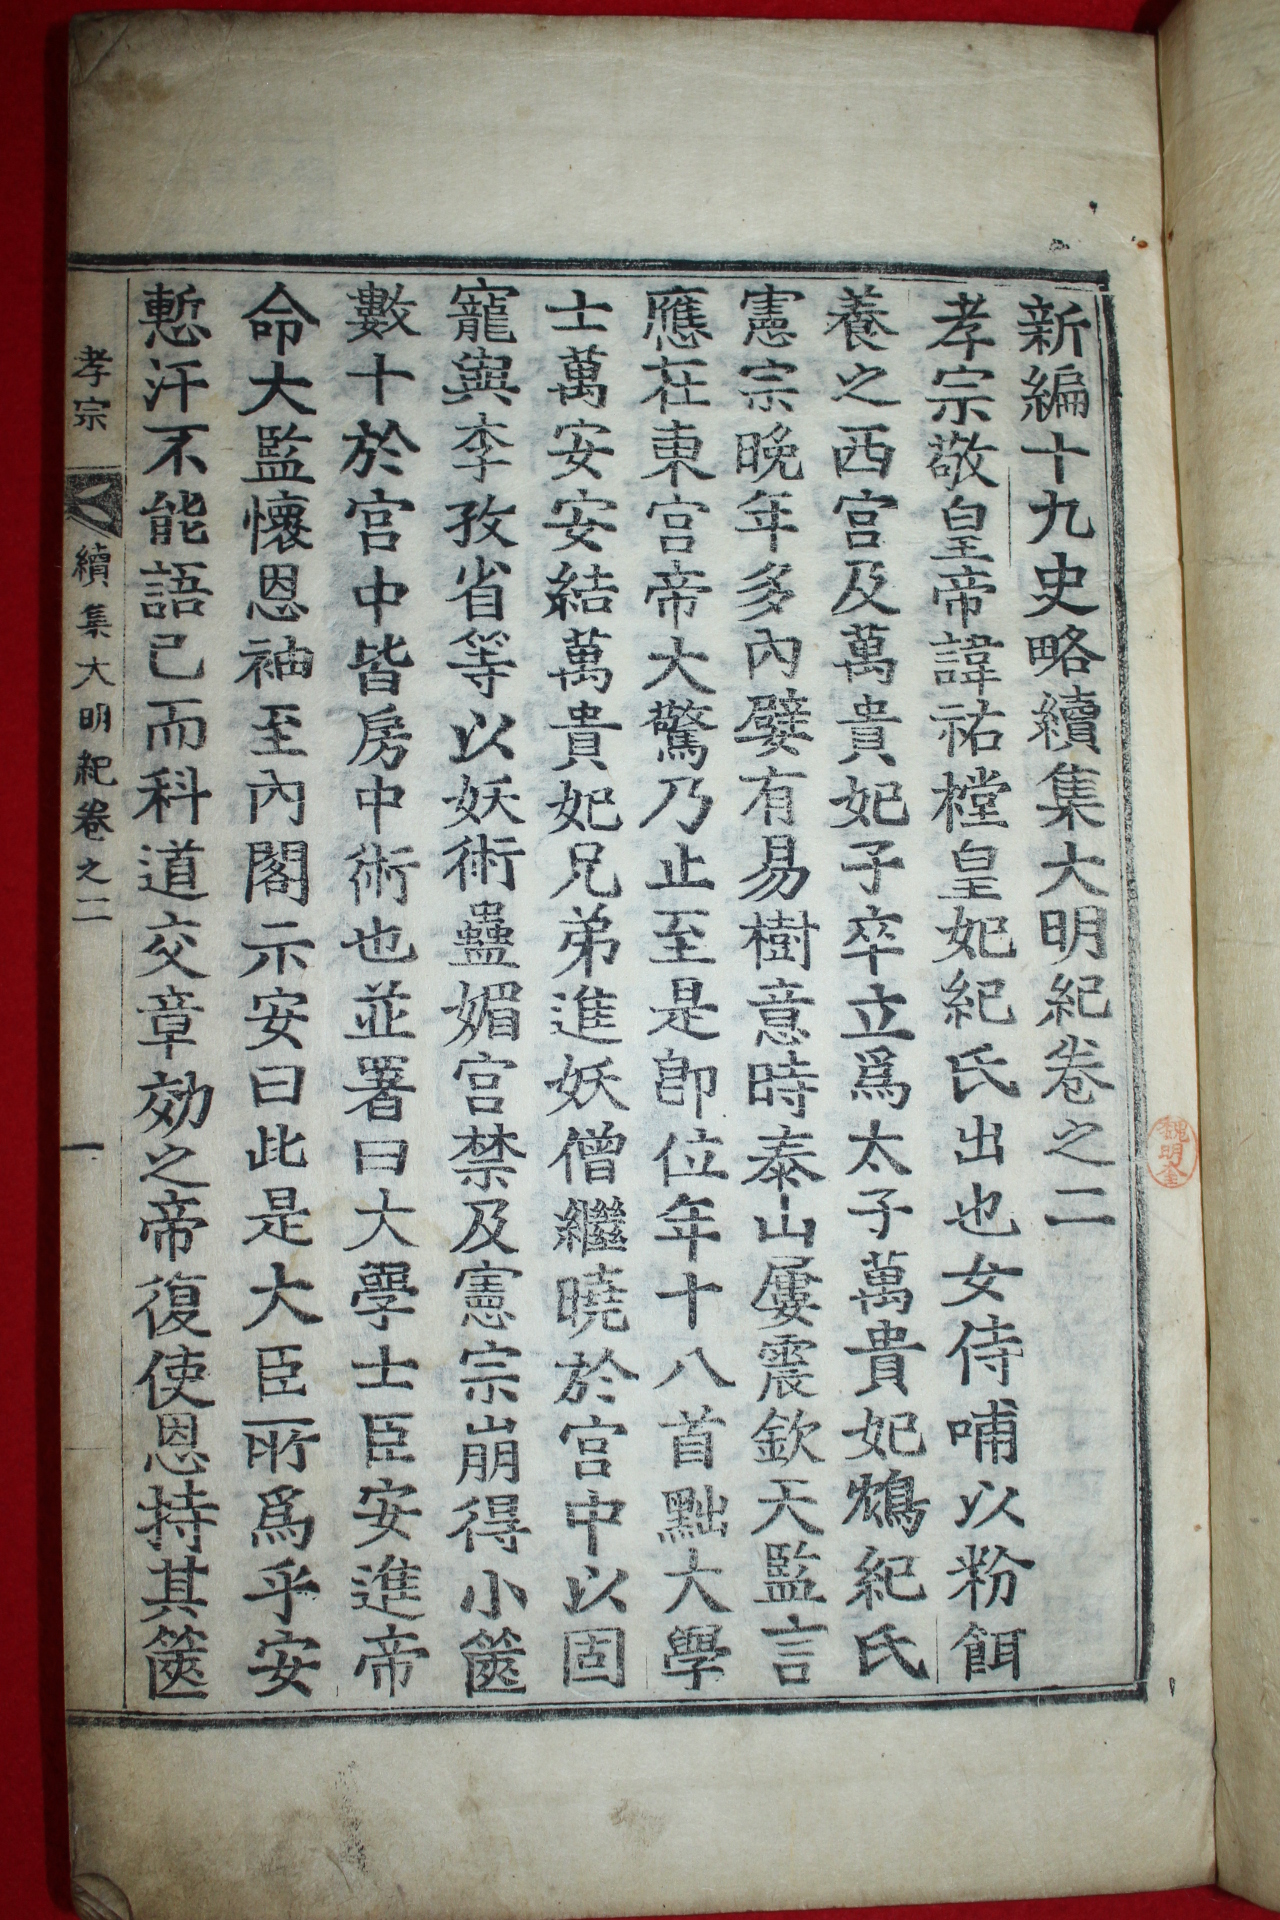 新編十九史略續集大明紀卷之二
孝宗敬皇帝諱祐樘皇妃紀氏出也女侍哺以粉餌
養之西宮及萬貴妃子卒立爲太子萬貴妃鴆紀氏
憲宗晚年多內嬖有易樹意時泰山屢震欽天監言
應在東宮帝大驚乃止至是卽位年十八首黜大學
士萬安安結萬貴妃兄弟進妖僧繼曉於宮中以固
寵與李孜省等以妖術蠱媚宮禁及憲宗崩得小篋
數十於宮中皆房中術也並署曰大學士臣安進帝
命大監懷恩袖至內閣示安曰此是大臣所爲乎安
慙汗不能語已而科道交章効之帝復使恩持其篋
孝宗
續集大明紀卷之二
一
魏明奎